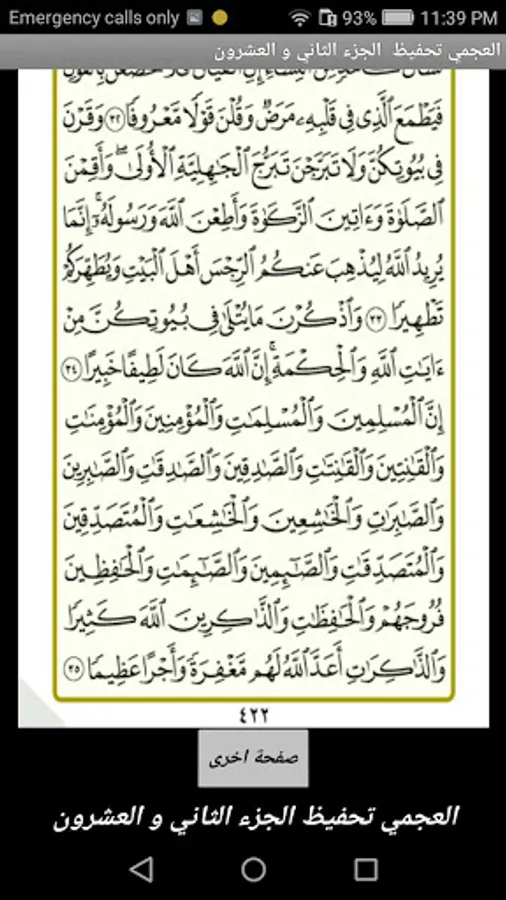 Emergency calls only 93% 11:39 PM
العجمي تحفيظ الجزء الثاني و العشرون
فَيَطْمَعَ ٱلَّذِى فِى قَلْبِهِۦ مَرَضٌ وَقُلْنَ قَوْلًا مَّعْرُوفًا ٣٢ وَقَرْنَ
فِى بُيُوتِكُنَّ وَلَا تَبَرَّجْنَ تَبَرُّجَ ٱلْجَٰهِلِيَّةِ ٱلْأُولَىٰ ۖ وَأَقِمْنَ
ٱلصَّلَوٰةَ وَءَاتِينَ ٱلزَّكَوٰةَ وَأَطِعْنَ ٱللَّهَ وَرَسُولَهُۥٓ ۚ إِنَّمَا
يُرِيدُ ٱللَّهُ لِيُذْهِبَ عَنكُمُ ٱلرِّجْسَ أَهْلَ ٱلْبَيْتِ وَيُطَهِّرَكُمْ
تَطْهِيرًا ٣٣ وَٱذْكُرْنَ مَا يُتْلَىٰ فِى بُيُوتِكُنَّ مِنْ
ءَايَٰتِ ٱللَّهِ وَٱلْحِكْمَةِ ۚ إِنَّ ٱللَّهَ كَانَ لَطِيفًا خَبِيرًا ٣٤
إِنَّ ٱلْمُسْلِمِينَ وَٱلْمُسْلِمَٰتِ وَٱلْمُؤْمِنِينَ وَٱلْمُؤْمِنَٰتِ
وَٱلْقَٰنِتِينَ وَٱلْقَٰنِتَٰتِ وَٱلصَّٰدِقِينَ وَٱلصَّٰدِقَٰتِ وَٱلصَّٰبِرِينَ
وَٱلصَّٰبِرَٰتِ وَٱلْخَٰشِعِينَ وَٱلْخَٰشِعَٰتِ وَٱلْمُتَصَدِّقِينَ
وَٱلْمُتَصَدِّقَٰتِ وَٱلصَّٰٓئِمِينَ وَٱلصَّٰٓئِمَٰتِ وَٱلْحَٰفِظِينَ
فُرُوجَهُمْ وَٱلْحَٰفِظَٰتِ وَٱلذَّٰكِرِينَ ٱللَّهَ كَثِيرًا
وَٱلذَّٰكِرَٰتِ أَعَدَّ ٱللَّهُ لَهُم مَّغْفِرَةً وَأَجْرًا عَظِيمًا ٣٥
٤٢٢
صفحة اخرى
العجمي تحفيظ الجزء الثاني و العشرون